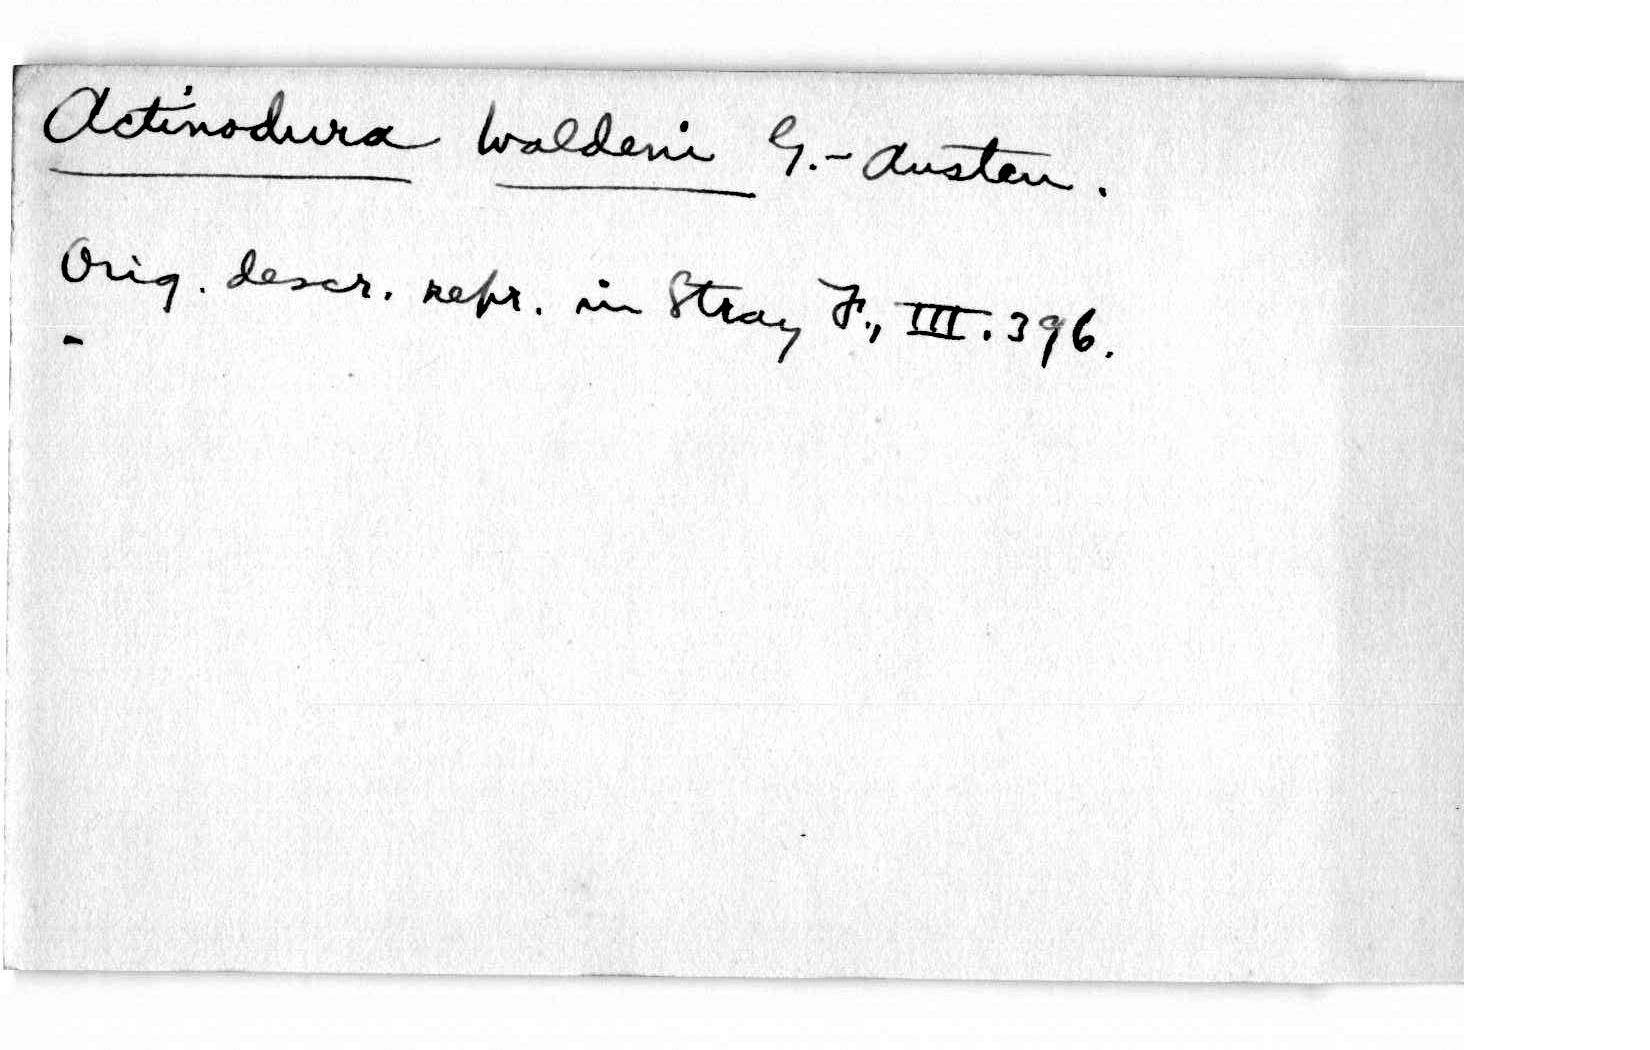 Actinodura waldeni G.-Austen.
Orig. descr. repr. in Stray F., III. 396.